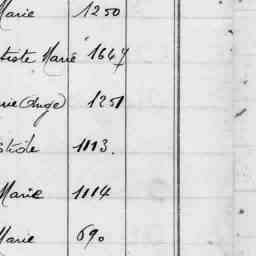 Marie 1250
tiste Marie 1647
rie (Ange) 1251
1113.
Marie 1114
Marie 690